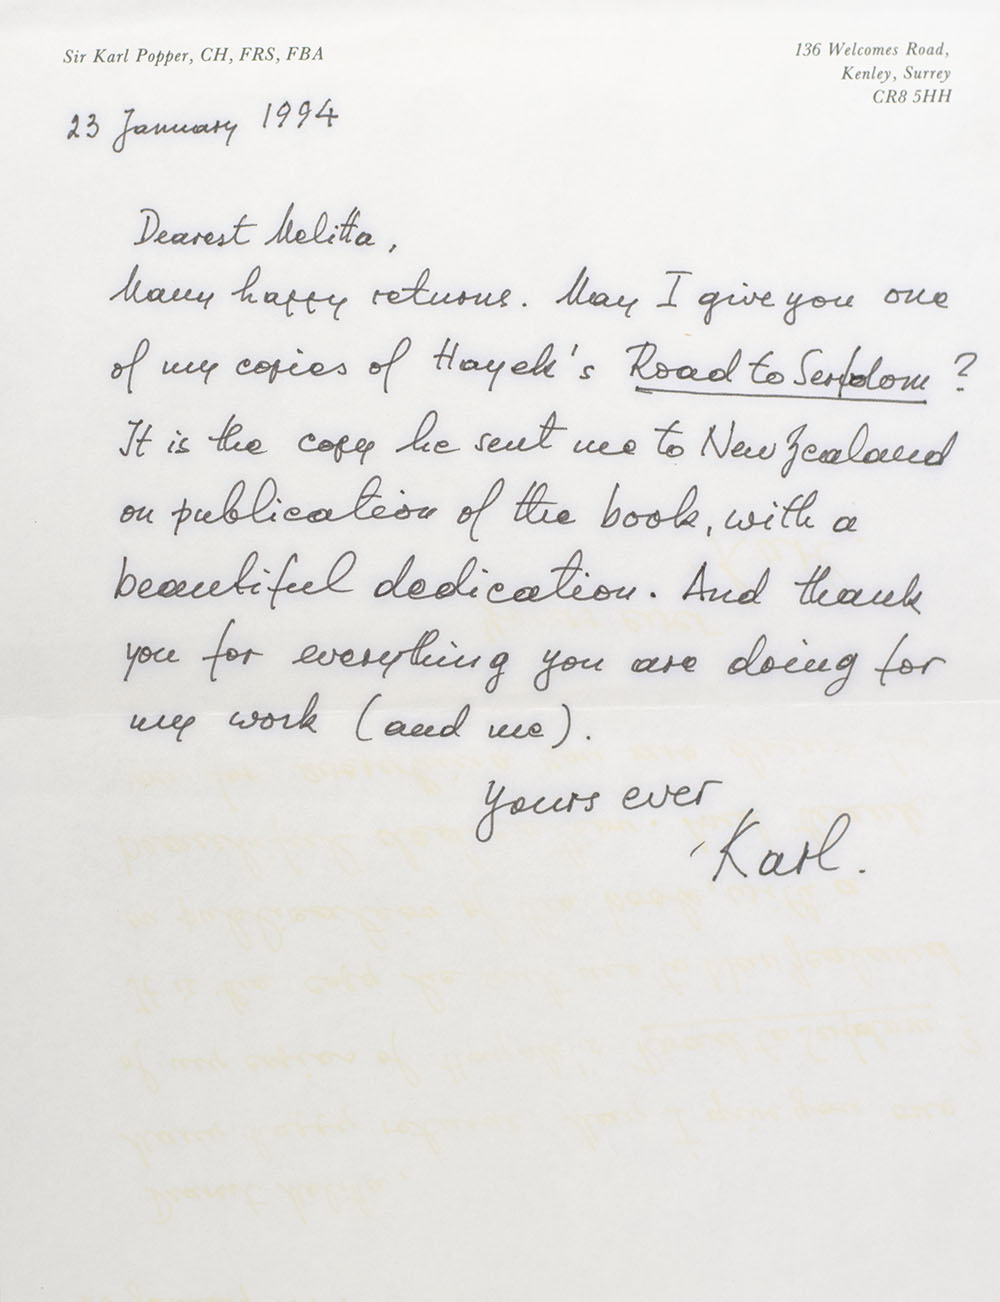 Sir Karl Popper, CH, FRS, FBA
136 Welcomes Road,
Kenley, Surrey
CR8 5HH
23 January 1994
Dearest Melitta,
Many happy returns. May I give you one
of my copies of Hayek's Road to Serfdom?
It is the copy he sent me to New Zealand
on publication of the book, with a
beautiful dedication. And thank
you for everything you are doing for
my work (and me).
Yours ever
Karl.